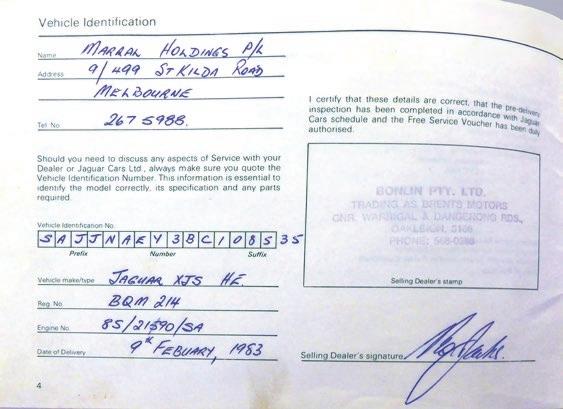 Vehicle Identification
Name MARRAL HOLDINGS P/L
Address 9/499 ST KILDA ROAD
MELBOURNE
Tel No. 267 5988.
Should you need to discuss any aspects of Service with your
Dealer or Jaguar Cars Ltd., always make sure you quote the
Vehicle Identification Number. This information is essential to
identify the model correctly, its specification and any parts
required.
Vehicle Identification No.
SAJJNAEY3BC108535
Prefix Number Suffix
Vehicle make/type JAGUAR XJS HE.
Reg. No. BQM 214
Engine No. 8S/21590/SA
Date of Delivery 9th FEBUARY, 1983
4
I certify that these details are correct, that the pre-delivery
inspection has been completed in accordance with Jaguar
Cars schedule and the Free Service Voucher has been duly
authorised.
BONLIN PTY. LTD.
TRADING AS BRENTS MOTORS
CNR. WARRIGAL & DANGENONG RDS,
OAKLEIGH, 3166
PHONE: 568-0288
Selling Dealer's stamp
Selling Dealer's signature